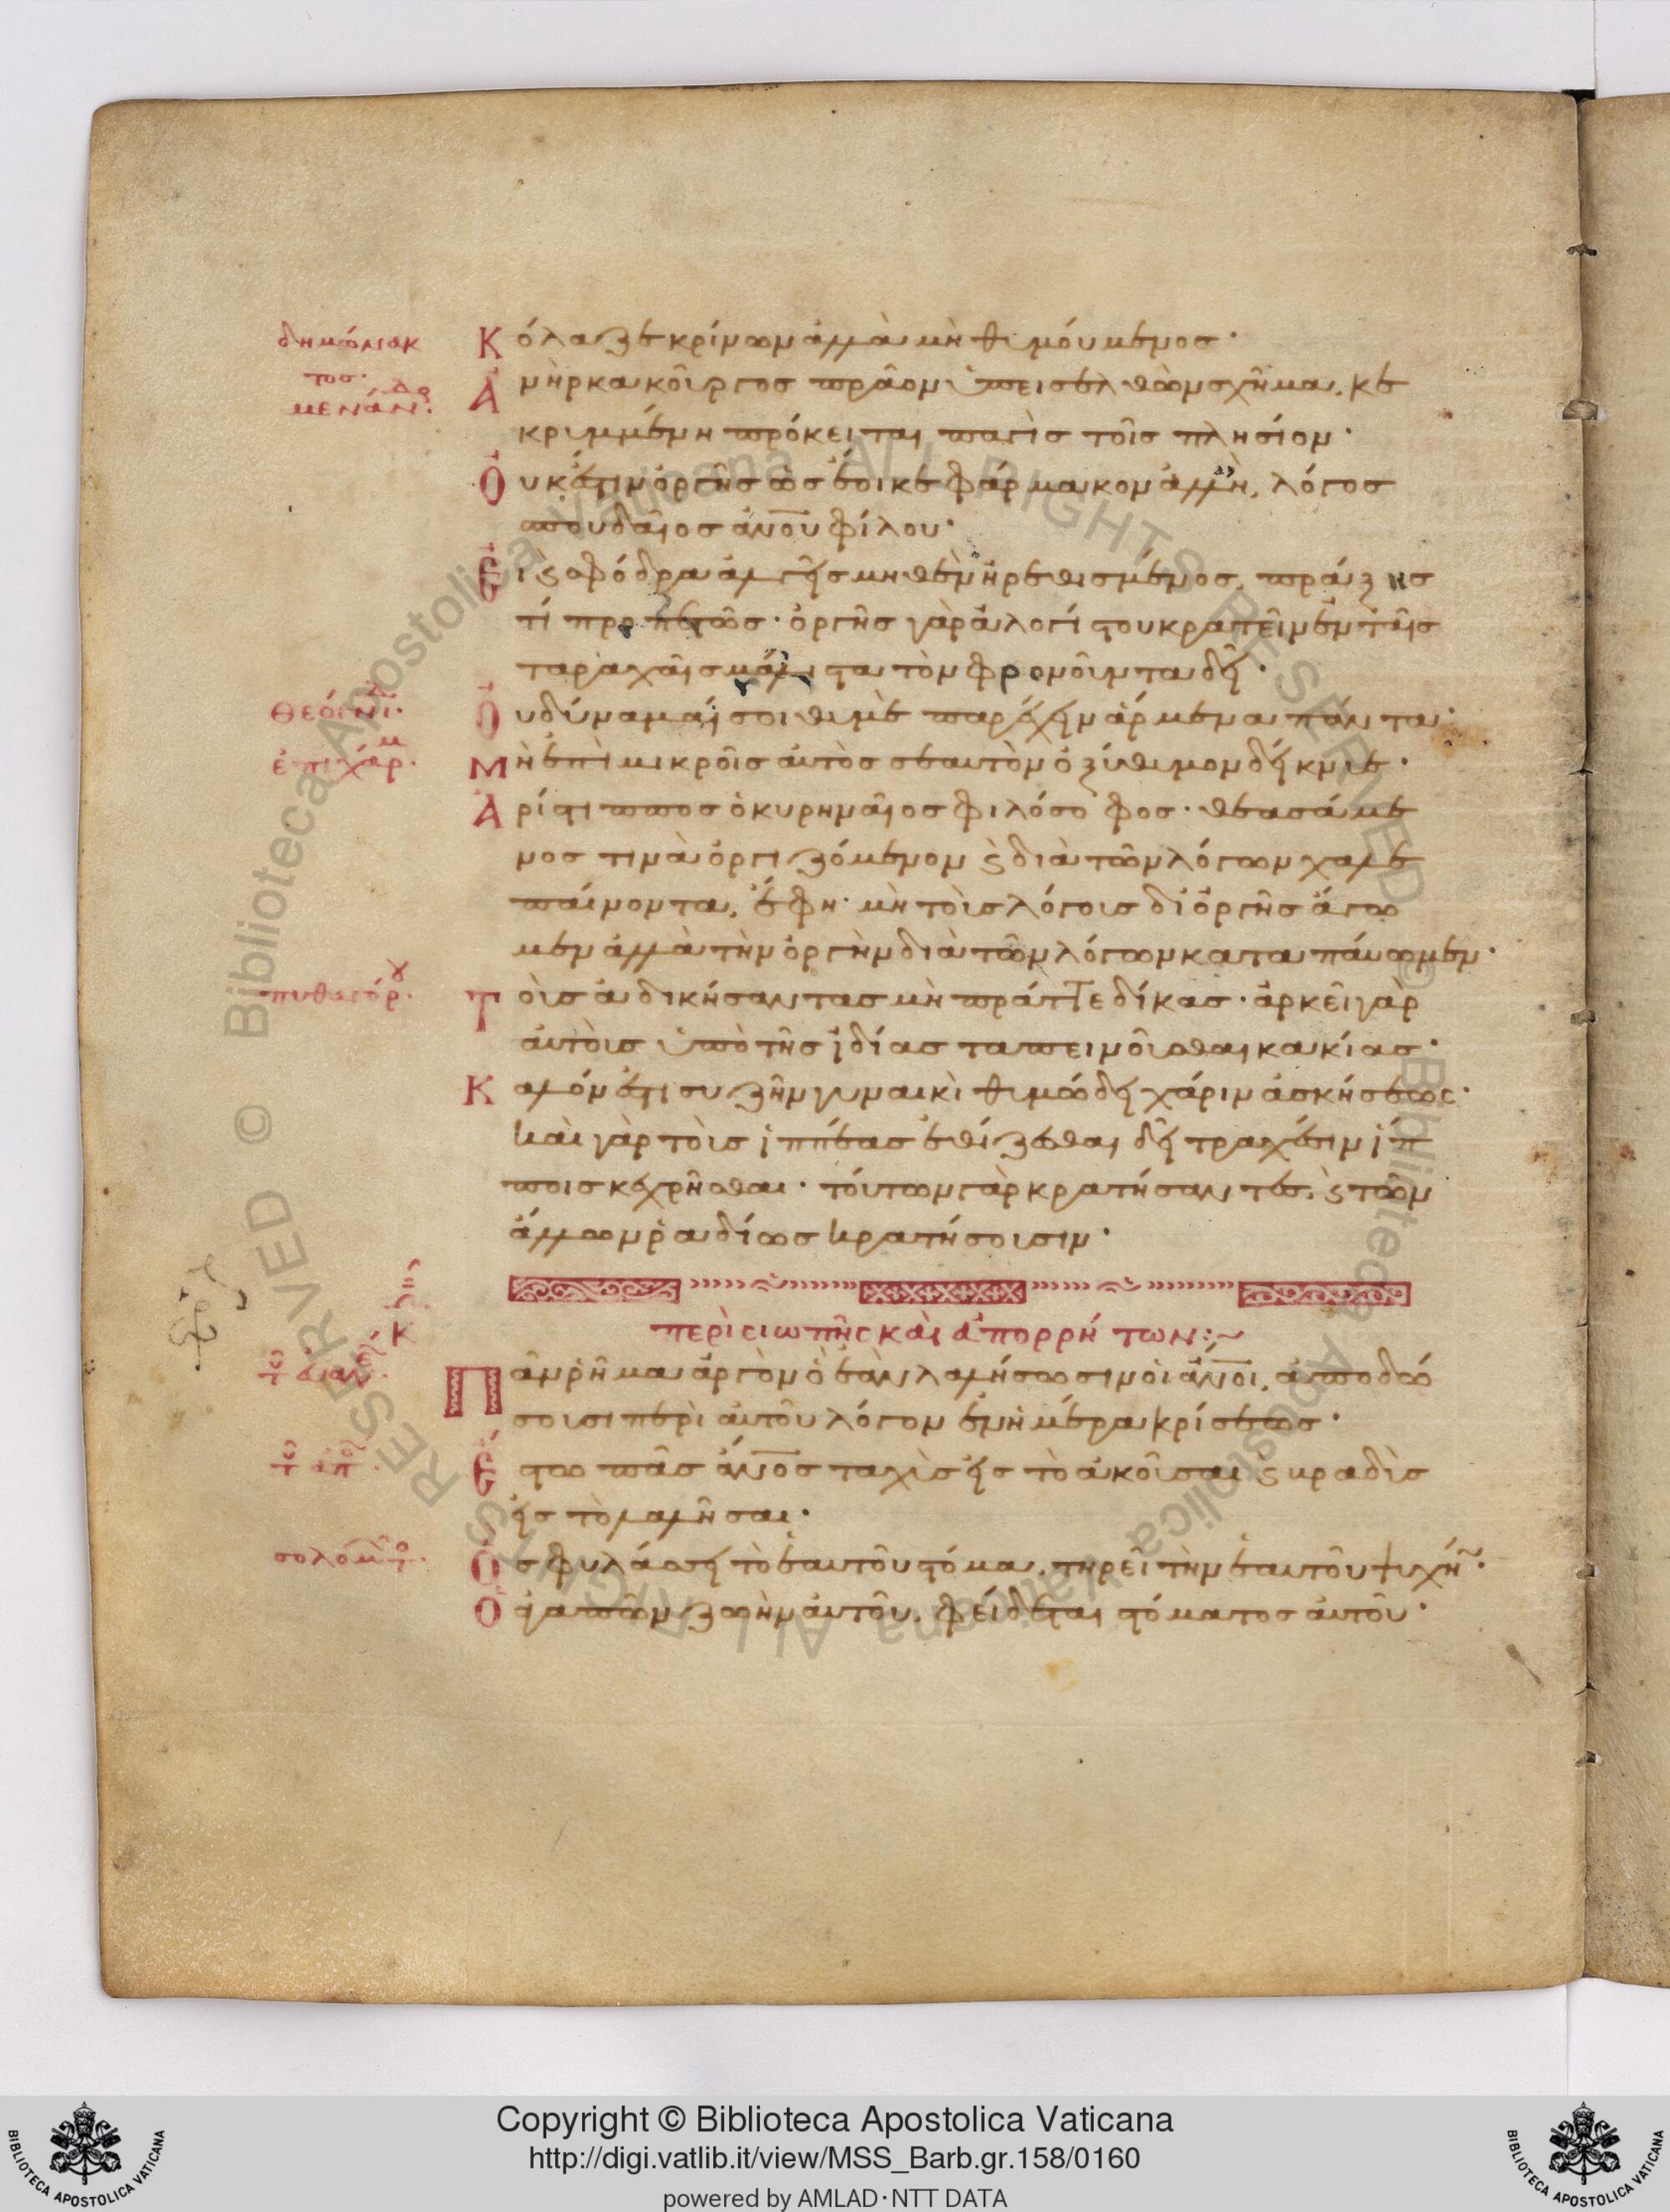 δημώνακ
τος·
Κόλαζε κρίνων ἀλλὰ μὴ θυμούμενος·
μενάνδρ·
Ἀνὴρ κακοῦργος πρᾶον ὑπεισελθὼν σχῆμα, κε
κρυμμένη πρόκειται παγὶς τοῖς πλησίον·
Οὐκ ἔστιν ὀργῆς ὡς ἔοικε φάρμακον ἀλλ' ἢ, λόγος
σπουδαῖος ἀνου φίλου·
Εἰ σφόδρα ἀλγεῖς μηθὲν ἠρεθισμένος, πράξῃς
τί προπετῶς· ὀργῆς γὰρ ἀλογίστου κρατεῖν ἐν ταῖς
ταραχαῖς μάλιστα τὸν φρονοῦντα δεῖ·
θεόγνι·
Οὐ δύναμαί σοι θυμὲ παρέχειν ἄρμενα πάντα·
ἐπιχάρμ·
Μὴ ἐπὶ μικροῖς αὐτὸς σεαυτὸν ὀξύθυμον δείκνυε·
Ἀρίστιππος ὁ κυρηναῖος φιλόσοφος· θεασάμε
νος τινὰ ὀργιζόμενον ϗ διὰ τῶν λόγων χαλε
παίνοντα, ἔφη· μὴ τοὺς λόγους δι' ὀργῆς ἄγω
μεν ἀλλὰ τὴν ὀργὴν διὰ τῶν λόγων καταπαύωμεν·
πυθαγόρου·
Τοὺς ἀδικήσαντας μὴ πράττε δίκας· ἀρκεῖ γὰρ
αὐτοὺς ὑπὸ τῆς ἰδίας ταπεινοῦσθαι κακίας·
Καλόν ἐστι συζῆν γυναικὶ θυμώδει χάριν ἀσκήσεως·
καὶ γὰρ τοὺς ἱππέας ἐθίζεσθαι δεῖ τραχέσιν ἵπ
ποις κεχρῆσθαι· τούτων γὰρ κρατήσαντες, ϗ τῶν
ἄλλων ῥαδίως κρατήσουσιν·
περὶ σιωπῆς καὶ ἀπορρήτων:~
Κ
Πᾶν ῥῆμα ἀργὸν ὃ ἐὰν λαλήσωσιν οἱ ἄνοι, ἀποδώ
σουσι περὶ αὐτοῦ λόγον ἐν ἡμέρα κρίσεως·
Ἔστω πᾶς ἄνος ταχὺς εἰς τὸ ἀκοῦσαι, ϗ βραδὺς
εἰς τὸ λαλῆσαι·
σολομῶντο·
Ὃς φυλάσσει τὸ ἑαυτοῦ στόμα, τηρεῖ τὴν ἑαυτοῦ ψυχήν·
Ὁ ἀγαπῶν ζωὴν αὐτοῦ, φείδεται στόματος αὐτοῦ·
Copyright © Biblioteca Apostolica Vaticana
http://digi.vatlib.it/view/MSS_Barb.gr.158/0160
powered by AMLAD·NTT DATA